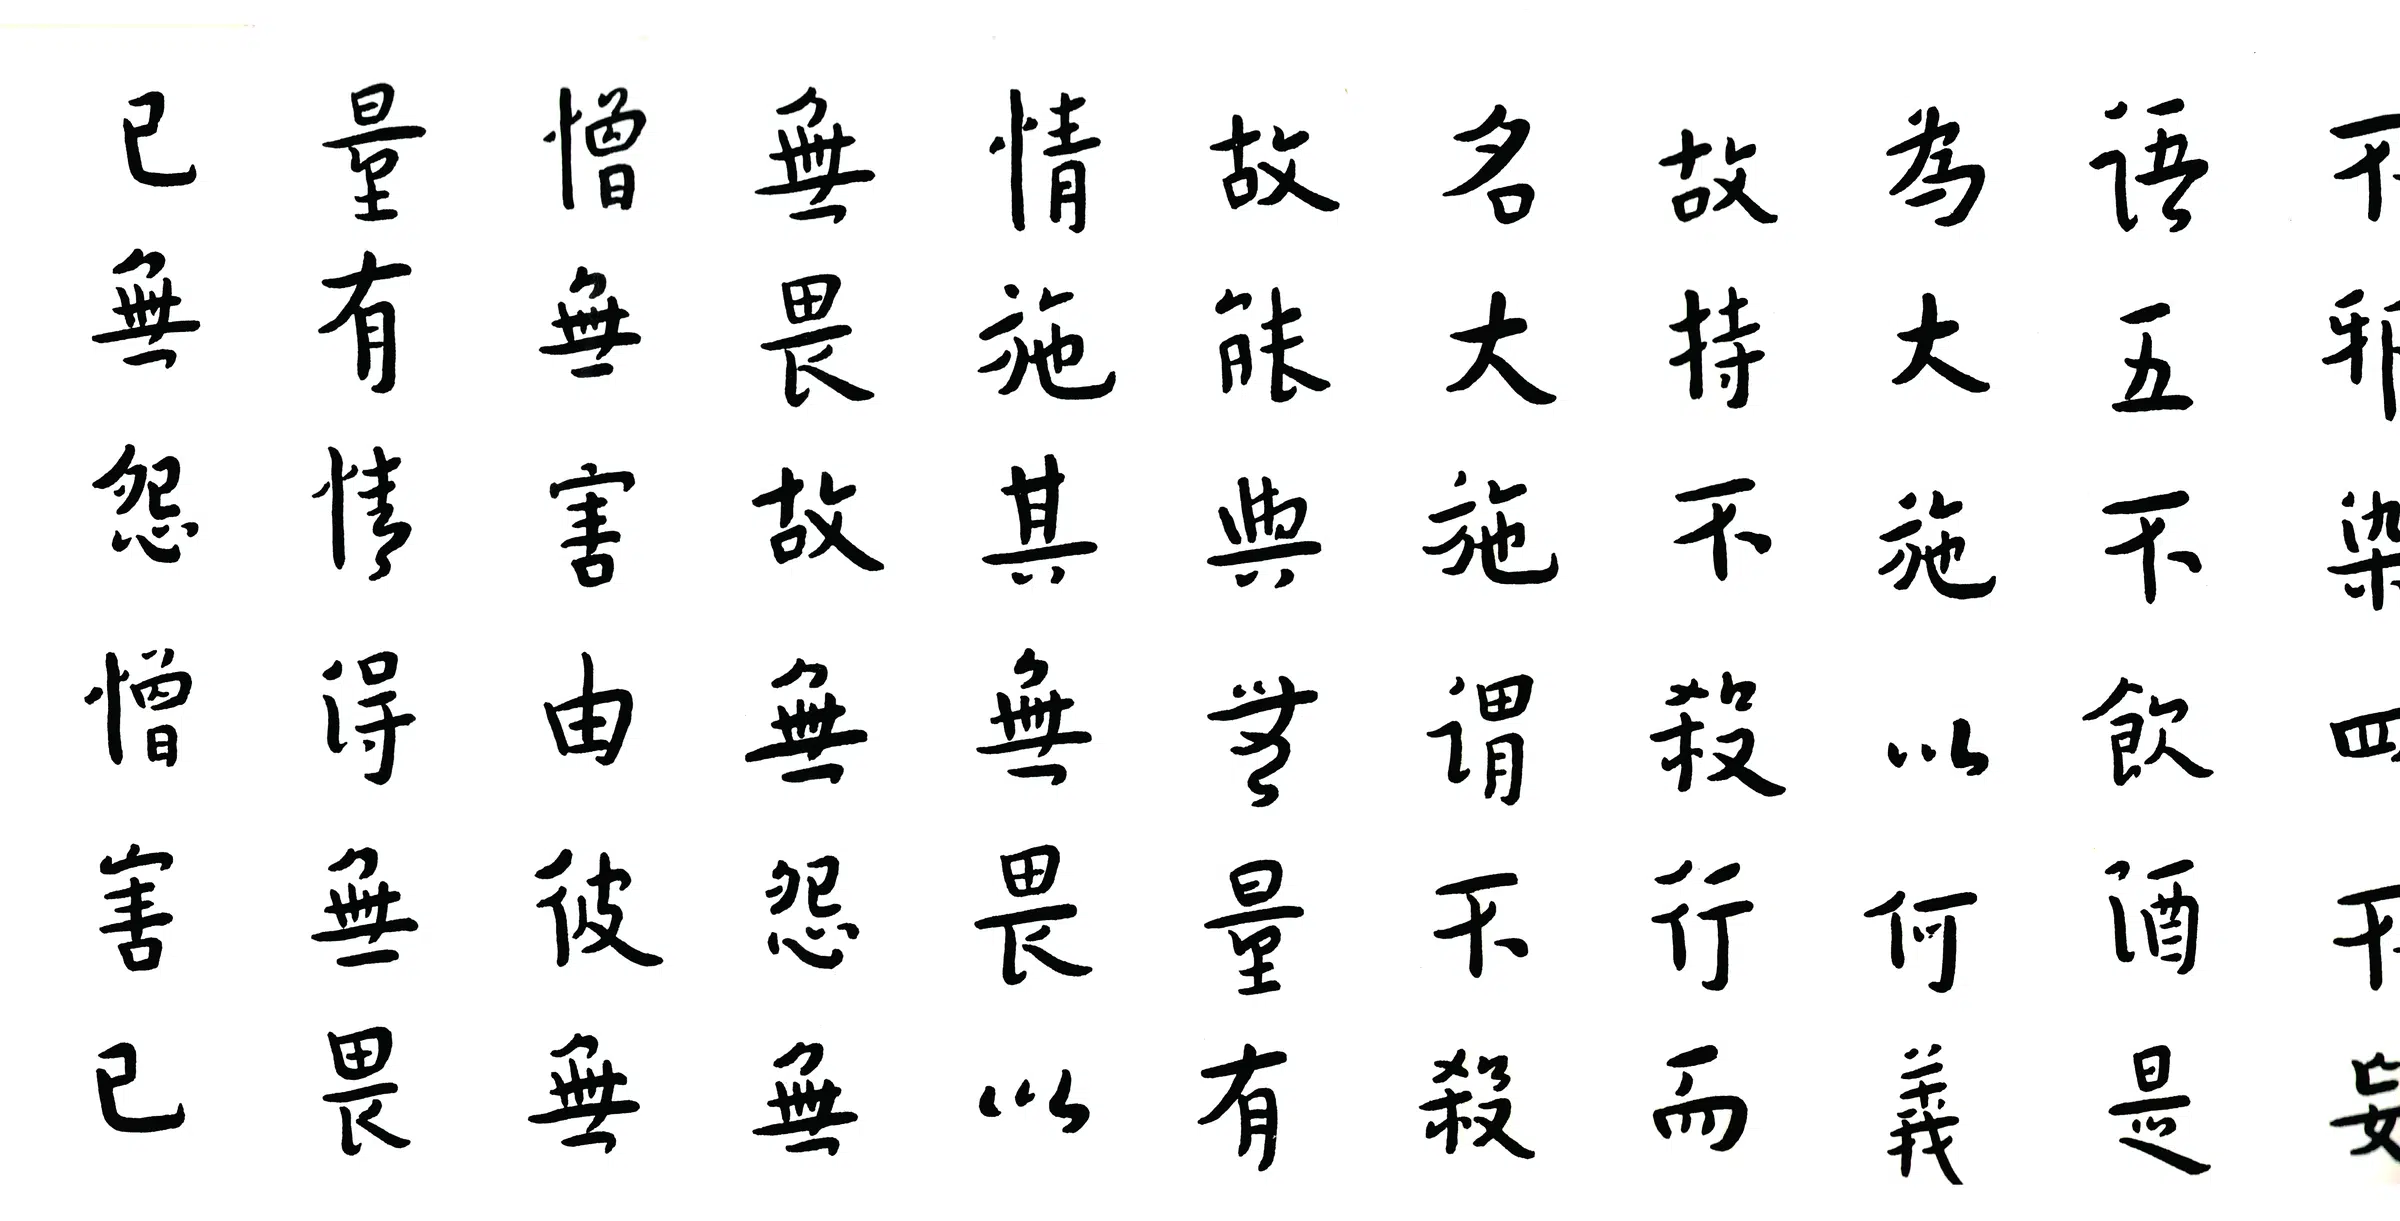 不邪染四不妄
語五不飲酒是
為大施以何義
故持不殺行而
名大施謂不殺
故能與無量有
情施其無畏以
無畏故無怨無
憎無害由彼無
量有情得無畏
已無怨憎害已